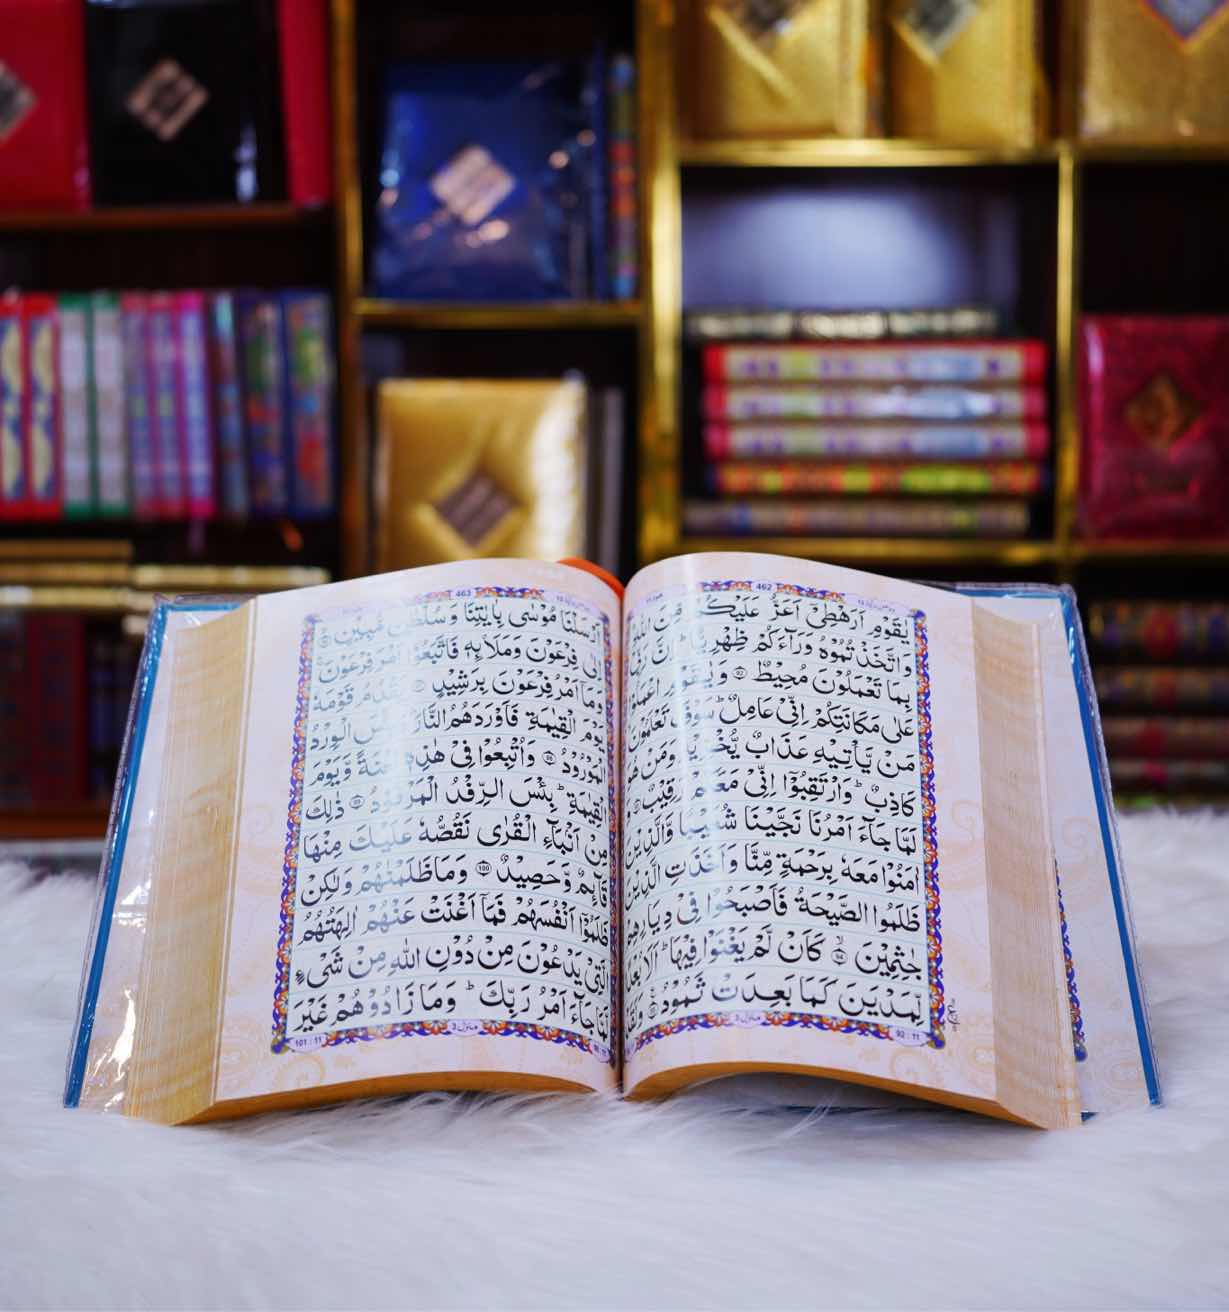 462
يٰقَوْمِ اَرَهْطِىْٓ اَعَزُّ عَلَيْكُمْ مِّنَ اللّٰهِ
وَاتَّخَذْتُمُوْهُ وَرَآءَكُمْ ظِهْرِيًّا ؕ اِنَّ رَبِّىْ
بِمَا تَعْمَلُوْنَ مُحِيْطٌ 92 وَيٰقَوْمِ اعْمَلُوْا
عَلٰى مَكَانَتِكُمْ اِنِّىْ عَامِلٌ ؕ سَوْفَ تَعْلَمُوْنَ
مَنْ يَّاْتِيْهِ عَذَابٌ يُّخْزِيْهِ وَمَنْ هُوَ
كَاذِبٌ ؕ وَارْتَقِبُوْٓا اِنِّىْ مَعَكُمْ رَقِيْبٌ
لَمَّا جَآءَ اَمْرُنَا نَجَّيْنَا شُعَيْبًا وَّالَّذِيْنَ
اٰمَنُوْا مَعَهٗ بِرَحْمَةٍ مِّنَّا وَاَخَذَتِ الَّذِيْنَ
ظَلَمُوا الصَّيْحَةُ فَاَصْبَحُوْا فِىْ دِيَارِهِمْ
جٰثِمِيْنَ 94 كَاَنْ لَّمْ يَغْنَوْا فِيْهَا ؕ اَلَا بُعْدًا
لِّمَدْيَنَ كَمَا بَعِدَتْ ثَمُوْدُ وَلَقَدْ
منزل 3
92 : 11
463
اَرْسَلْنَا مُوْسٰى بِاٰيٰتِنَا وَسُلْطٰنٍ مُّبِيْنٍ
اِلٰى فِرْعَوْنَ وَمَلَا۟ئِهٖ فَاتَّبَعُوْٓا اَمْرَ فِرْعَوْنَ ۚ
وَمَآ اَمْرُ فِرْعَوْنَ بِرَشِيْدٍ يَقْدُمُ قَوْمَهٗ
يَوْمَ الْقِيٰمَةِ فَاَوْرَدَهُمُ النَّارَ ؕ وَبِئْسَ الْوِرْدُ
الْمَوْرُوْدُ 98 وَاُتْبِعُوْا فِىْ هٰذِهٖ لَعْنَةً وَّيَوْمَ
الْقِيٰمَةِ ؕ بِئْسَ الرِّفْدُ الْمَرْفُوْدُ 99 ذٰلِكَ
مِنْ اَنْۢبَآءِ الْقُرٰى نَقُصُّهٗ عَلَيْكَ مِنْهَا
قَآئِمٌ وَّحَصِيْدٌ 100 وَمَا ظَلَمْنٰهُمْ وَلٰكِنْ
ظَلَمُوْٓا اَنْفُسَهُمْ فَمَآ اَغْنَتْ عَنْهُمْ اٰلِهَتُهُمُ
الَّتِىْ يَدْعُوْنَ مِنْ دُوْنِ اللّٰهِ مِنْ شَىْءٍ
لَّمَّا جَآءَ اَمْرُ رَبِّكَ ؕ وَمَا زَادُوْهُمْ غَيْرَ
منزل 3
101 : 11